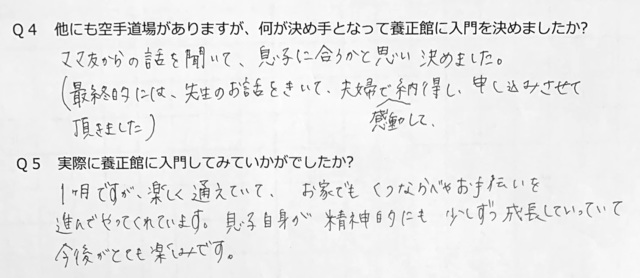 Q4 他にも空手道場がありますが、何が決め手となって養正館に入門を決めましたか?
ママ友からの話を聞いて、息子に合うかと思い決めました。
(最終的には、先生のお話をきいて、夫婦で納得し、申し込みさせて
感動して、
頂きました)
Q5 実際に養正館に入門してみていかがでしたか?
1ヶ月ですが、楽しく通えていて、お家でもくつならべやお手伝いを
進んでやってくれています。息子自身が精神的にも少しずつ成長していっていて
今後がとても楽しみです。